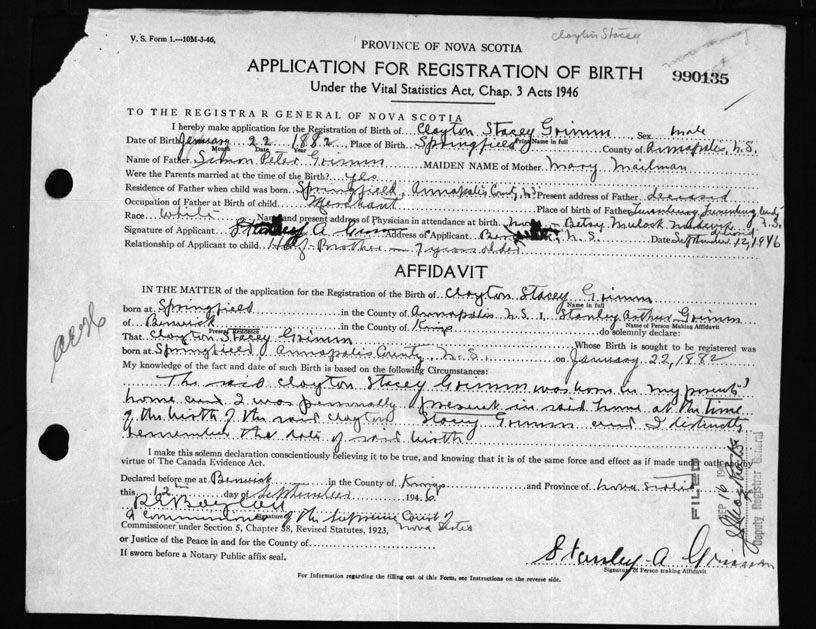 V. S. Form 1.—10M-3-46.
Clayton Stacey
PROVINCE OF NOVA SCOTIA
APPLICATION FOR REGISTRATION OF BIRTH
990135
Under the Vital Statistics Act, Chap. 3 Acts 1946
TO THE REGISTRAR GENERAL OF NOVA SCOTIA
I hereby make application for the Registration of Birth of Clayton Stacey Grimm Sex male
Print Name in full
Date of Birth January 22 1882, Place of Birth Springfield County of Annapolis, N.S.
Month Date Year
Name of Father Simon Peter Grimm MAIDEN NAME of Mother Mary Mailman
Were the Parents married at the time of the Birth? yes
Residence of Father when child was born Springfield, Annapolis County, N.S. Present address of Father deceased
Occupation of Father at Birth of child Merchant Place of birth of Father Lunenburg, Lunenburg County N.S.
Race White Name and present address of Physician in attendance at birth Betsy Mulock Midwife
Signature of Applicant Stanley A Grimm Address of Applicant N.S. Date September 12, 1946
Relationship of Applicant to child Half-Brother — 7 years older
AFFIDAVIT
IN THE MATTER of the application for the Registration of Birth of Clayton Stacey Grimm
Name in full
born at Springfield in the County of Annapolis N.S. I, Stanley Arthur Grimm
Name of Person Making Affidavit
of Berwick in the County of Kings do solemnly declare:
Present Residence
That Clayton Stacey Grimm Whose Birth is sought to be registered was
born at Springfield Annapolis County, N.S. on January 22, 1882
My knowledge of the fact and date of such Birth is based on the following Circumstances:
The said Clayton Stacey Grimm was born in my parents'
home and I was personally present in said home at the time
of the birth of the said Clayton Stacey Grimm and I distinctly
remember the date of said birth
I make this solemn declaration conscientiously believing it to be true, and knowing that it is of the same force and effect as if made under oath and by
virtue of The Canada Evidence Act.
Declared before me at Berwick in the County of Kings and Province of Nova Scotia
this 12th day of September 1946
Signature
A Commissioner of the Supreme Court of Nova Scotia
Commissioner under Section 5, Chapter 38, Revised Statutes, 1923,
or Justice of the Peace in and for the County of
If sworn before a Notary Public affix seal.
Stanley A Grimm
Signature of Person making Affidavit
For Information regarding the filling out of this Form, see Instructions on the reverse side.
FILED
SEP 16
Deputy Registrar General